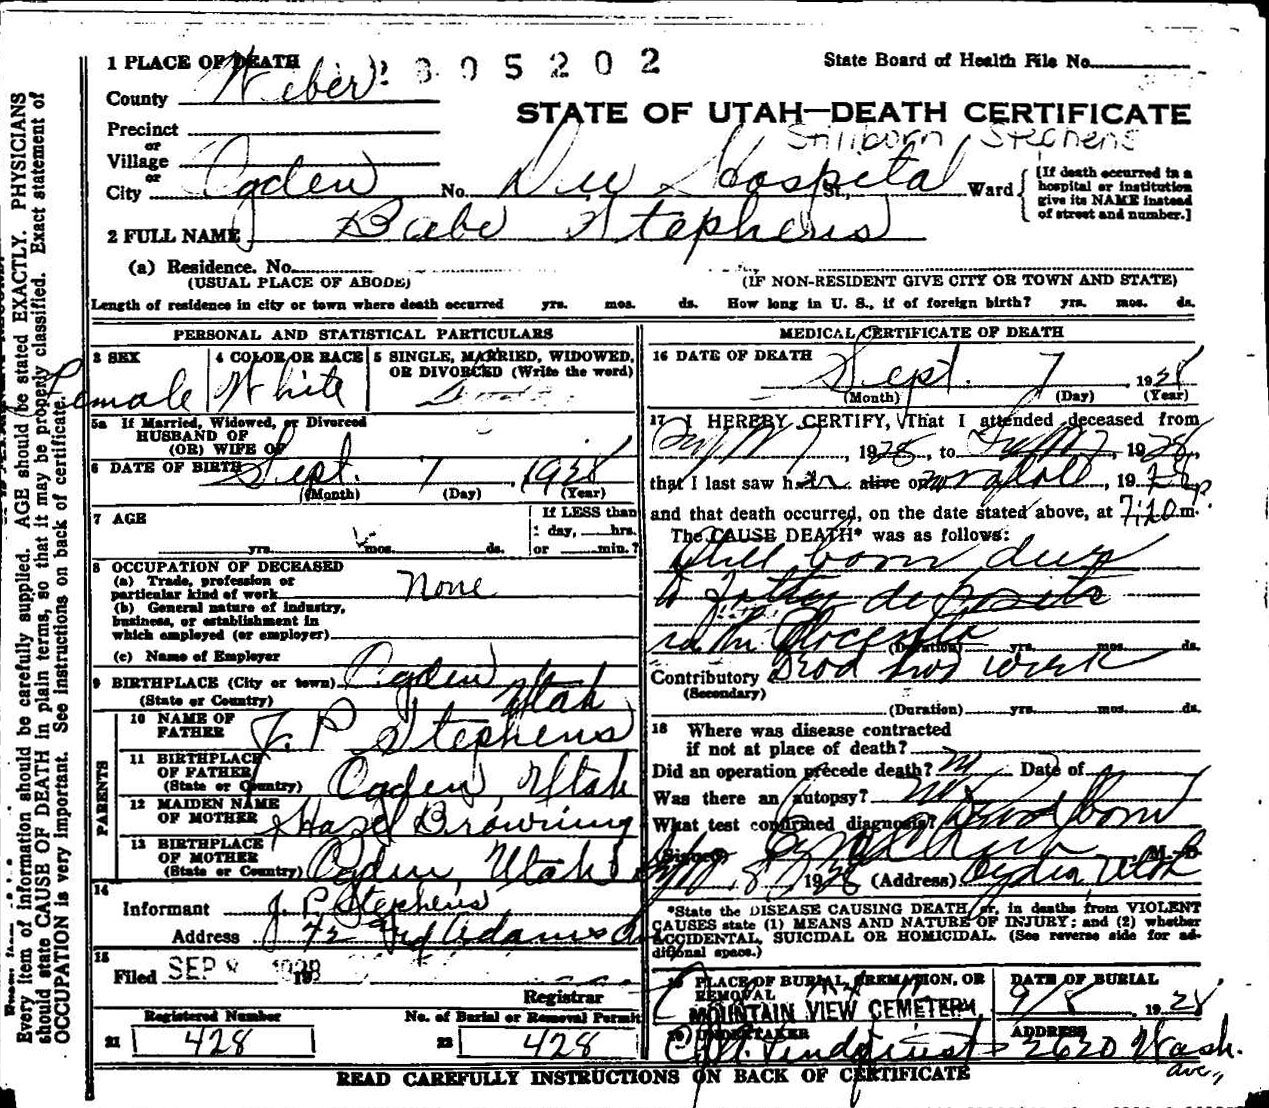 1 PLACE OF DEATH
2805202
State Board of Health File No.
County Weber
STATE OF UTAH—DEATH CERTIFICATE
Precinct
or
Stillborn Stephens
Village
or
City Ogden No. Dee Hospital St., Ward
[If death occurred in a
hospital or institution
give its NAME instead
of street and number.]
2 FULL NAME Babe Stephens
(a) Residence. No.
(USUAL PLACE OF ABODE) (IF NON-RESIDENT GIVE CITY OR TOWN AND STATE)
Length of residence in city or town where death occurred yrs. mos. ds. How long in U. S., if of foreign birth? yrs. mos. ds.
PERSONAL AND STATISTICAL PARTICULARS
3 SEX 4 COLOR OR RACE 5 SINGLE, MARRIED, WIDOWED,
OR DIVORCED (Write the word)
Female White
5a If Married, Widowed, or Divorced
HUSBAND OF
(OR) WIFE OF
6 DATE OF BIRTH Sept. 7, 1928
(Month) (Day) (Year)
7 AGE If LESS than
1 day, hrs.
yrs. mos. ds. or min.?
8 OCCUPATION OF DECEASED
(a) Trade, profession or
particular kind of work None
(b) General nature of industry,
business, or establishment in
which employed (or employer)
(c) Name of Employer
9 BIRTHPLACE (City or town) Ogden
(State or Country) Utah
PARENTS
10 NAME OF
FATHER J. P. Stephens
11 BIRTHPLACE
OF FATHER
(State or Country) Ogden, Utah
12 MAIDEN NAME
OF MOTHER Hazel Browning
13 BIRTHPLACE
OF MOTHER
(State or Country) Ogden, Utah
14
Informant J. P. Stephens
Address Adams
15
Filed SEP 8 1928
Registrar
Registered Number No. of Burial or Removal Permit
21 428 22 428
MEDICAL CERTIFICATE OF DEATH
16 DATE OF DEATH
Sept. 7, 1928
(Month) (Day) (Year)
17 I HEREBY CERTIFY, That I attended deceased from
Sept 7, 1928, to Sept 7, 1928,
that I last saw her alive on not at all, 19
and that death occurred, on the date stated above, at 7:20 p m.
The CAUSE DEATH* was as follows:
Still born due
to fatty deposits
in the Placenta
(Duration) yrs. mos. ds.
Contributory Dead two week
(Secondary)
(Duration) yrs. mos. ds.
18 Where was disease contracted
if not at place of death?
Did an operation precede death? no Date of
Was there an autopsy? no
What test confirmed diagnosis? Dead born
Signed M. D.
8, 1928 (Address) Ogden Utah
*State the DISEASE CAUSING DEATH, or, in deaths from VIOLENT
CAUSES state (1) MEANS AND NATURE OF INJURY; and (2) whether
ACCIDENTAL, SUICIDAL OR HOMICIDAL. (See reverse side for ad-
ditional space.)
PLACE OF BURIAL, CREMATION, OR
REMOVAL
DATE OF BURIAL
MOUNTAIN VIEW CEMETERY
9/8, 1928
20 UNDERTAKER ADDRESS
Lindquist 2620 Wash.
ave.,
READ CAREFULLY INSTRUCTIONS ON BACK OF CERTIFICATE
Every item of information should be carefully supplied. AGE should be stated EXACTLY. PHYSICIANS
should state CAUSE OF DEATH in plain terms, so that it may be properly classified. Exact statement of
OCCUPATION is very important. See instructions on back of certificate.